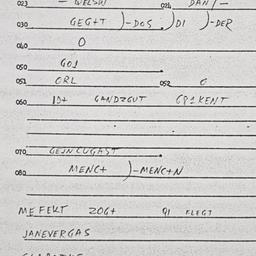 023 — WELSW 024 DAN/—
030 GEG+T )-DOS. )DI )-DER
040 O
050 GO1
051 CRL 052 O
060 ID+ GANDZGUT CP1KENT
070 GEJNCUGAST
080 MENC+ )-MENC+N
MEFEKT ZOG+ 91 FLEGT
JANEVERGAS